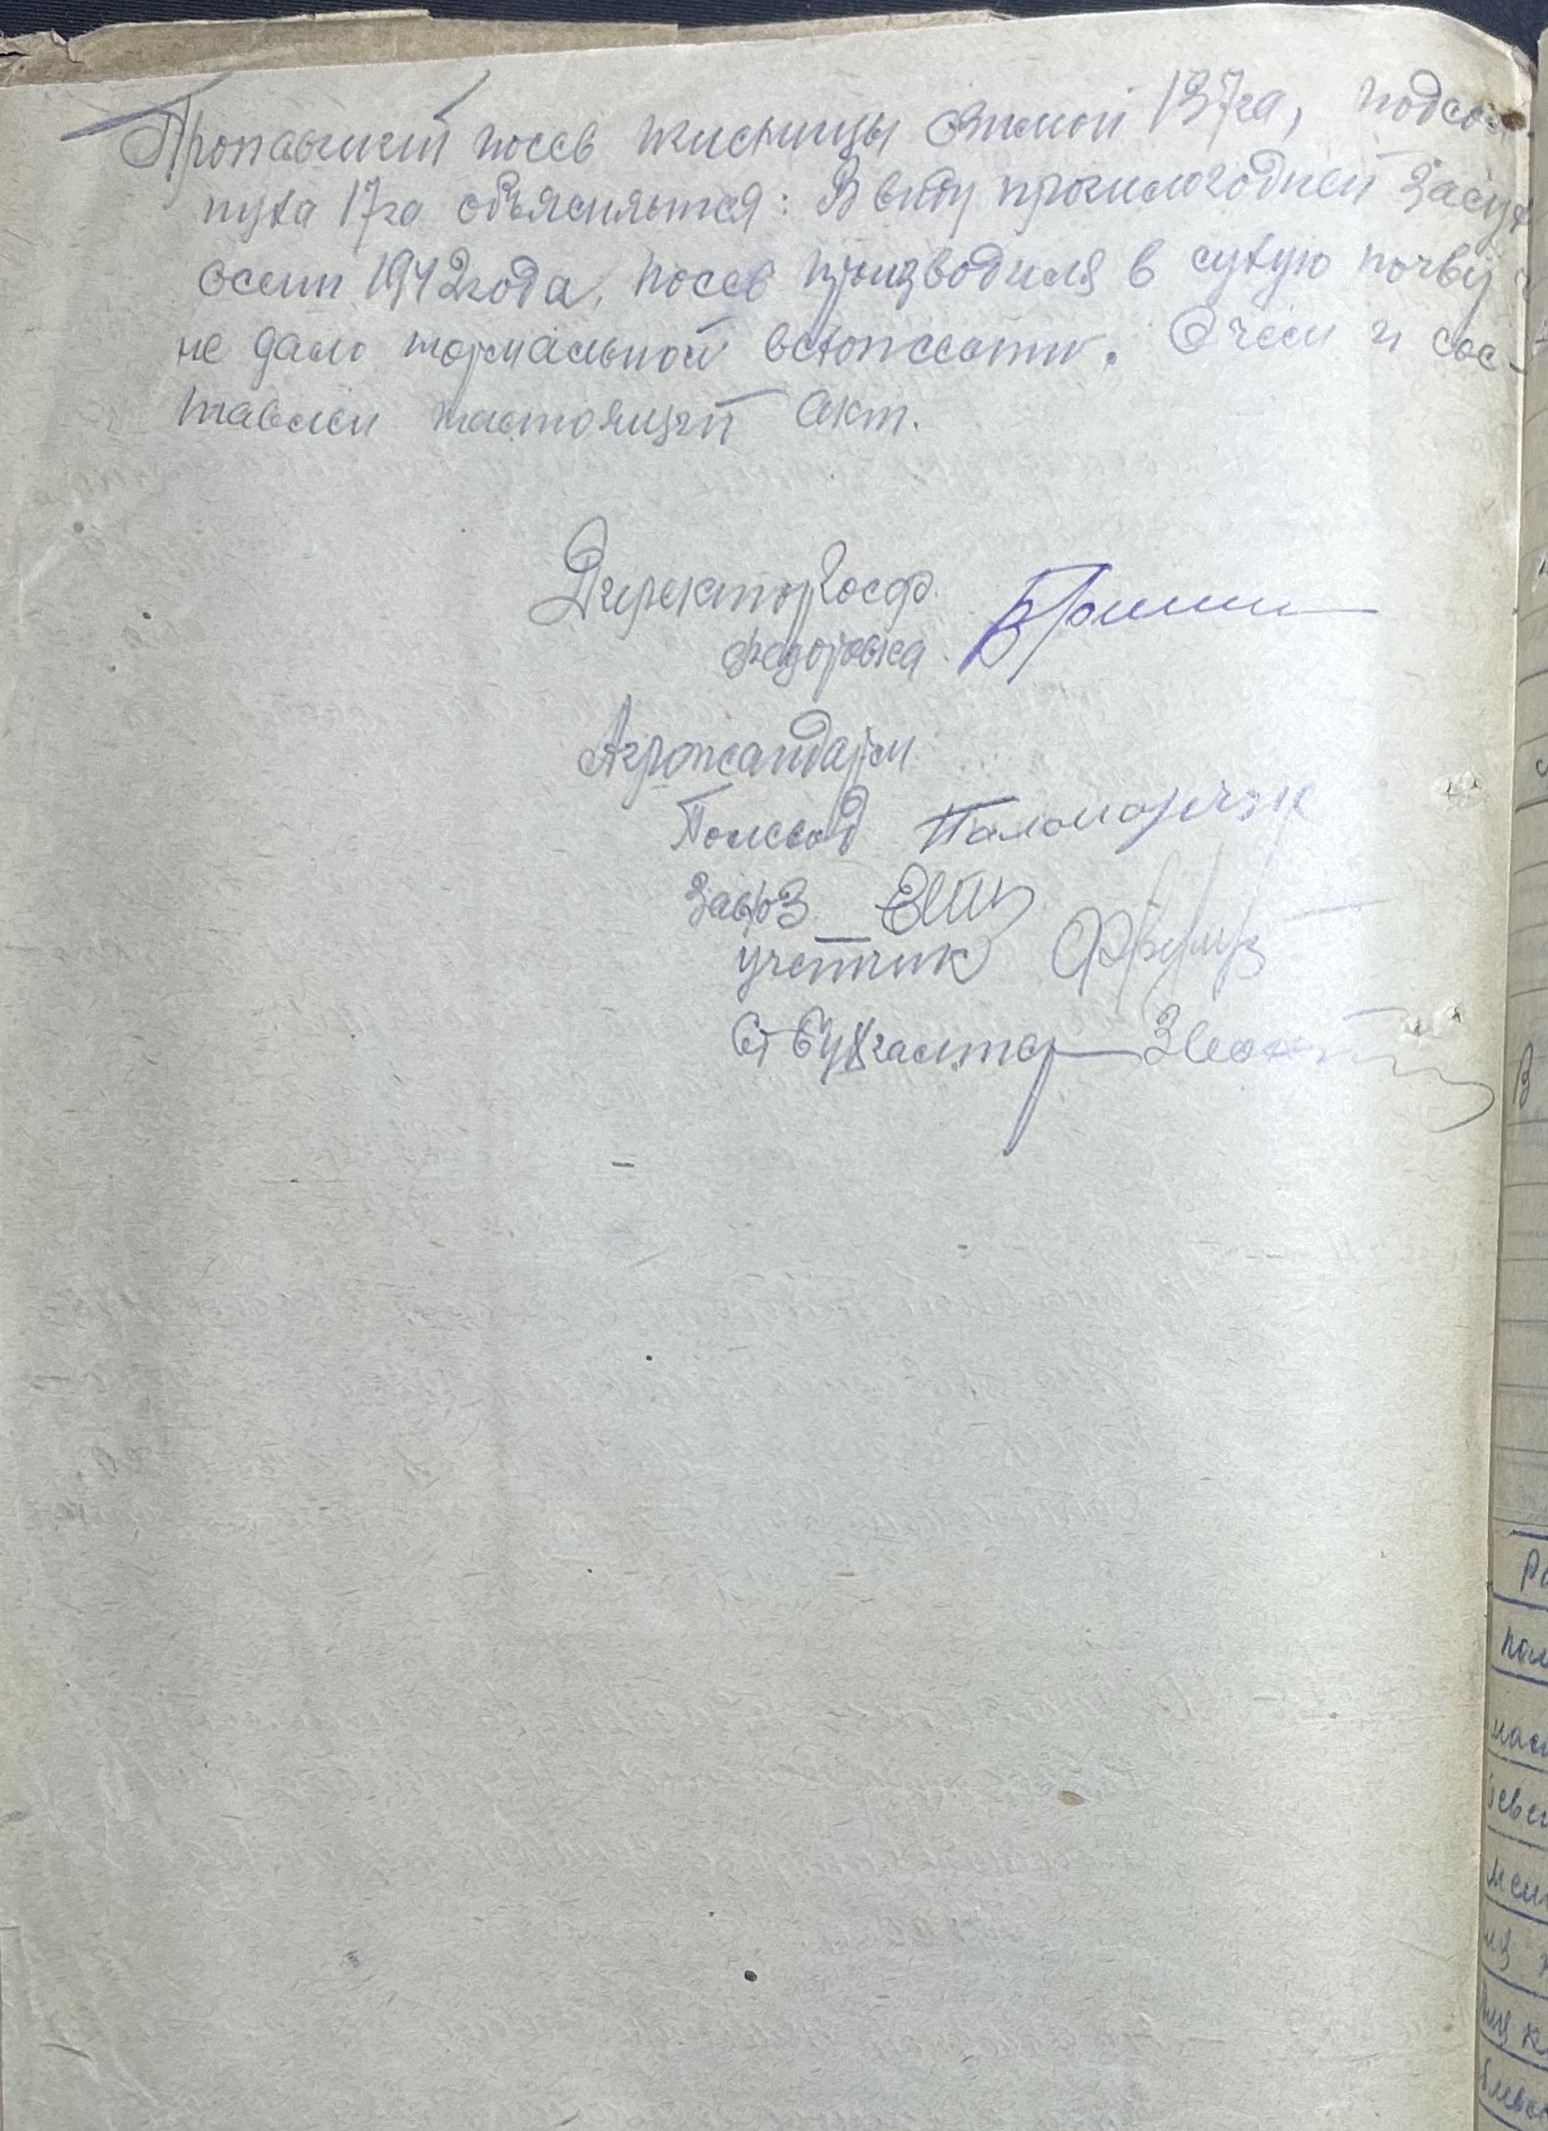 Пропавший посев пшеницы озимой 137га, подсол-
нуха 17га объясняется: В виду прошлогодней засух
осени 1942года, посев производился в сухую почву
не дало нормальной всхожести. О чем и сос-
тавлен настоящий акт.
Директор Госф.
Федоровка
Агрожандарм
Полевод Паламарчук
Завхоз
учетчик
Ст бухгалтер